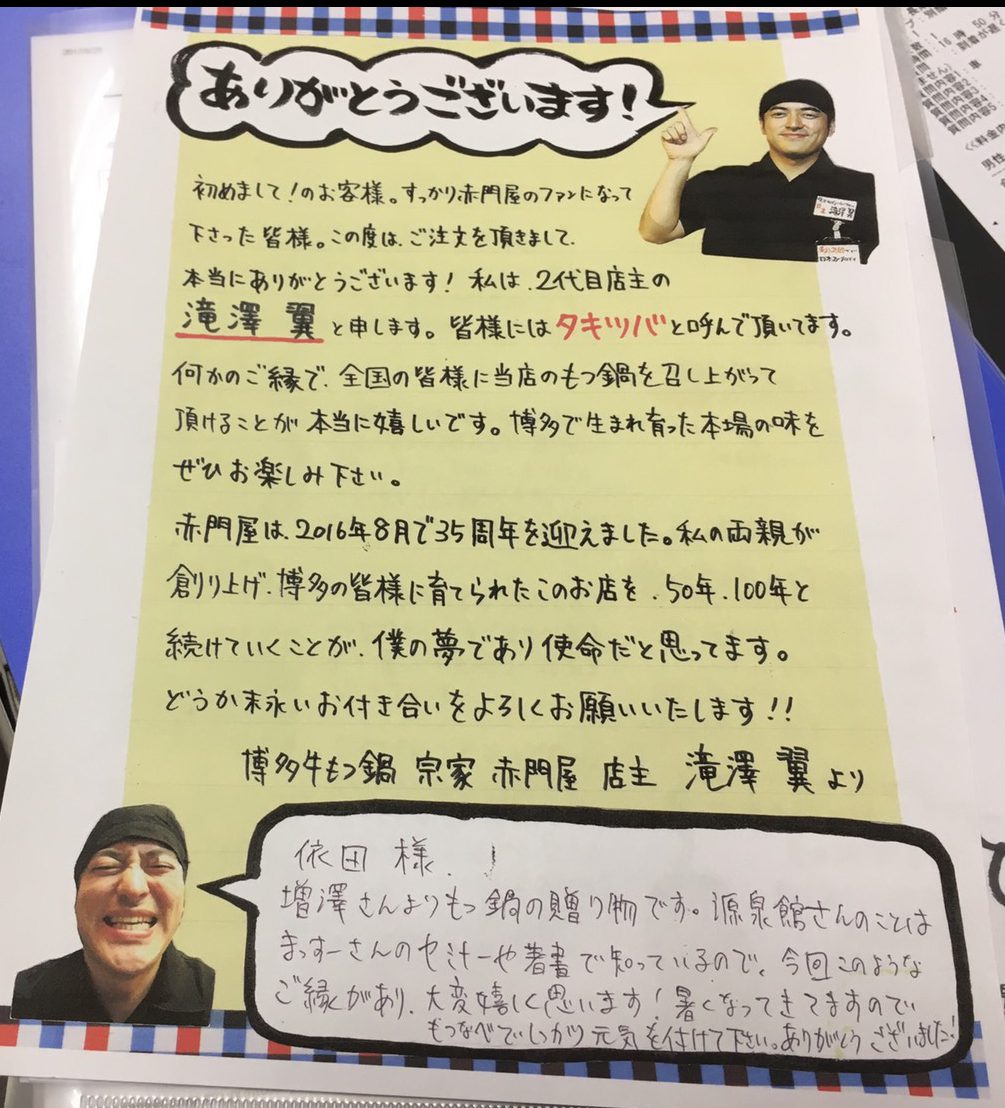 ありがとうございます!
初めまして!のお客様。すっかり赤門屋のファンになって
下さった皆様。この度は、ご注文を頂きまして、
本当にありがとうございます! 私は、2代目店主の
滝澤 翼 と申します。皆様にはタキツバと呼んで頂いてます。
何かのご縁で、全国の皆様に当店のもつ鍋を召し上がって
頂けることが 本当に嬉しいです。博多で生まれ育った本場の味を
ぜひお楽しみ下さい。
赤門屋は、2016年8月で35周年を迎えました。私の両親が
創り上げ、博多の皆様に育てられたこのお店を、50年、100年と
続けていくことが、僕の夢であり使命だと思ってます。
どうか末永いお付き合いをよろしくお願いいたします!!
博多牛もつ鍋 宗家 赤門屋 店主 滝澤 翼 より
依田 様、
増澤さんよりもつ鍋の贈り物です。源泉館さんのことは
まっすーさんのセミナーや著書で知っているので、今回このような
ご縁があり、大変嬉しく思います!暑くなってきてますので
もつなべでしっかり元気を付けて下さい。ありがとうございました!